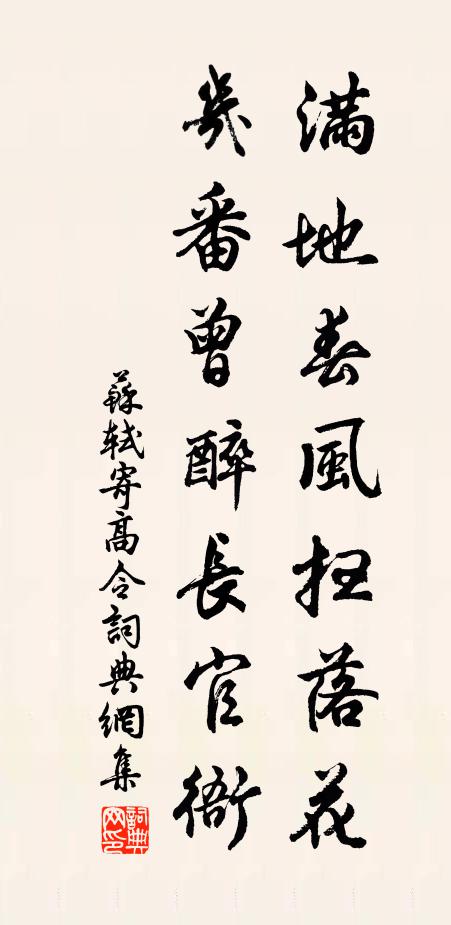 滿地春風掃落花
幾番曾醉長官衙
蘇軾寄高令詞典網集
詞典网印